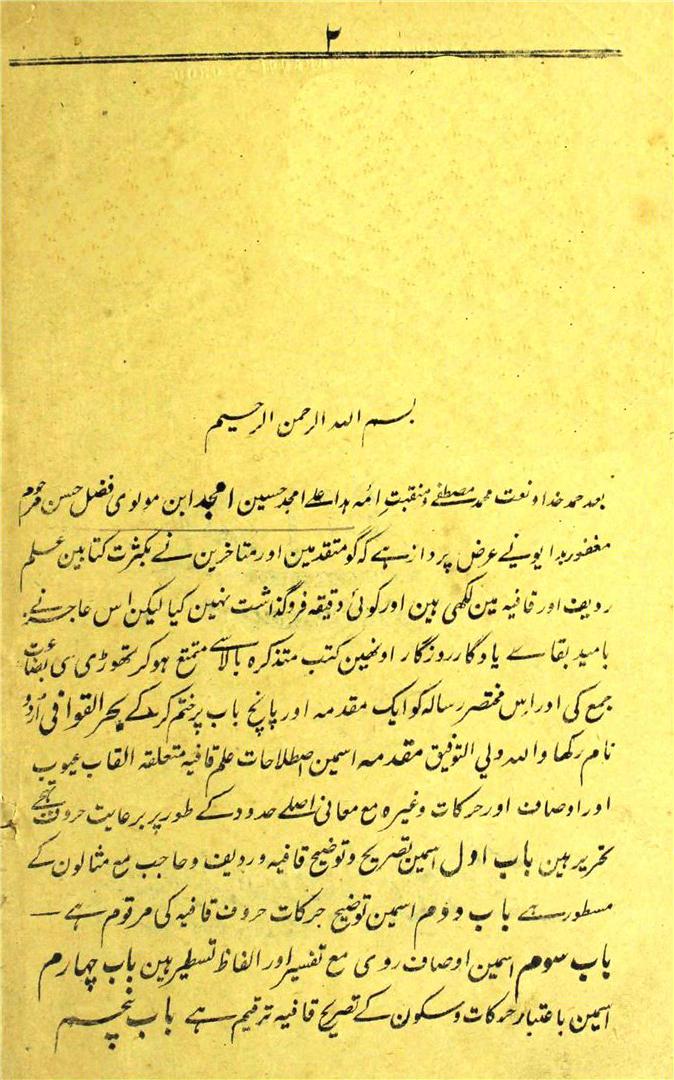 ۲
بسم اللہ الرحمن الرحیم
بعد حمد خدا و نعت محمد مصطفےٰ و منقبت ائمہ ہدا علے امجد حسین امجد ابن مولوی فضل حسن مرحوم
مغفور بدایونے عرض پرداز ہے کہ گو متقدمین اور متاخرین نے بکثرت کتابین علم
ردیف اور قافیہ مین لکھی ہین اور کوئی دقیقہ فروگذاشت نہین کیا لیکن اس عاجز نے
بامید بقاے یادگار روزگار اونہین کتب متذکرہ بالا سے متمتع ہوکر تھوڑی سی بضاعت
جمع کی اور اس مختصر رسالہ کو ایک مقدمہ اور پانچ باب پر ختم کرکے بحر القوافی اُردُو
نام رکھا واللہ ولی التوفیق مقدمہ اسمین اصطلاحات علم قافیہ متعلقہ القاب عیوب
اور اوصاف اور حرکات وغیرہ مع معانی اصلے حدود کے طور پر برعایت حروف تہجے
تحریر ہین باب اول اسمین تصریح و توضیح قافیہ و ردیف و حاجب مع مثالون کے
مسطور ہے باب دوم اسمین توضیح حرکات حروف قافیہ کی مرقوم ہے —
باب سوم اسمین اوصاف روی مع تفسیر اور الفاظ تسطیر ہین باب چہارم
اسمین باعتبار حرکات و سکون کے تصریح قافیہ ترقیم ہے باب پنجم